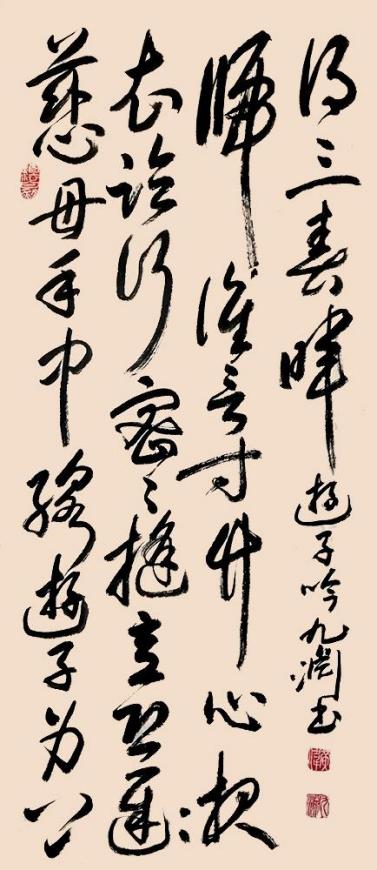 慈母手中線遊子身上
衣臨行密〻縫意恐遲〻
歸誰言寸草心報
得三春暉 遊子吟九淵書